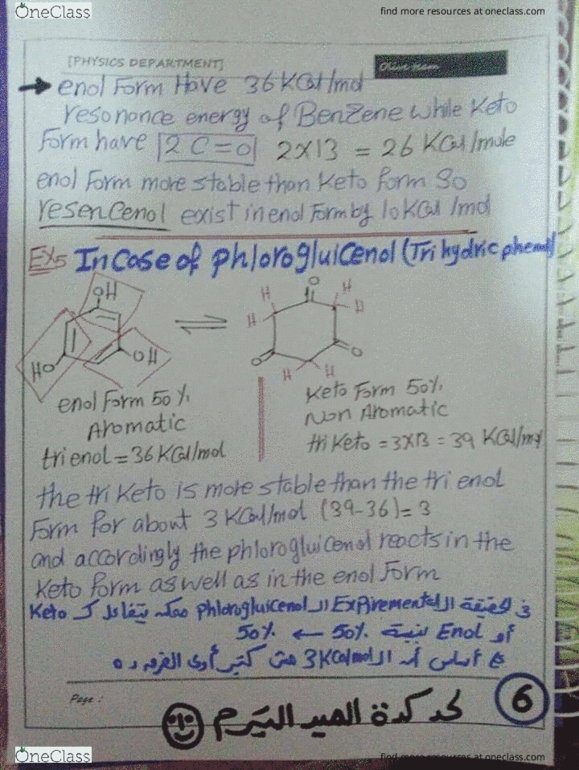 OneClass
find more resources at oneclass.com
[PHYSICS DEPARTMENT]
Olive team
→ enol Form Have 36 KCal/mol
resonance energy of BenZene while Keto
Form have 2 C=O 2x13 = 26 KCal/mole
enol Form more stable than Keto form so
resencenol exist in enol Form by 10 KCal /mol
Ex5 In Case of phlorogluicenol (Tri hydric phenol)
OH
HO
OH
O
H
H
H
H
O
O
H
H
enol Form 50%
Aromatic
tri enol = 36 KCal/mol
Keto Form 50%
Non Aromatic
tri Keto = 3x13 = 39 KCal/mol
the tri Keto is more stable than the tri enol
Form for about 3 KCal/mol (39-36)=3
and accordingly the phlorogluicenol reacts in the
Keto form as well as in the enol Form
فى الحقيقة الـ Expiremental الـ phlorogluicenol ممكن يتفاعل كـ Keto
أو Enol بنسبة 50% ← 50%
على أساس أن الـ 3 KCal/mol مش كتير أوى الفرق ده
Page :
6
لحد كدة الميد التيرم
OneClass
find more resources at oneclass.com